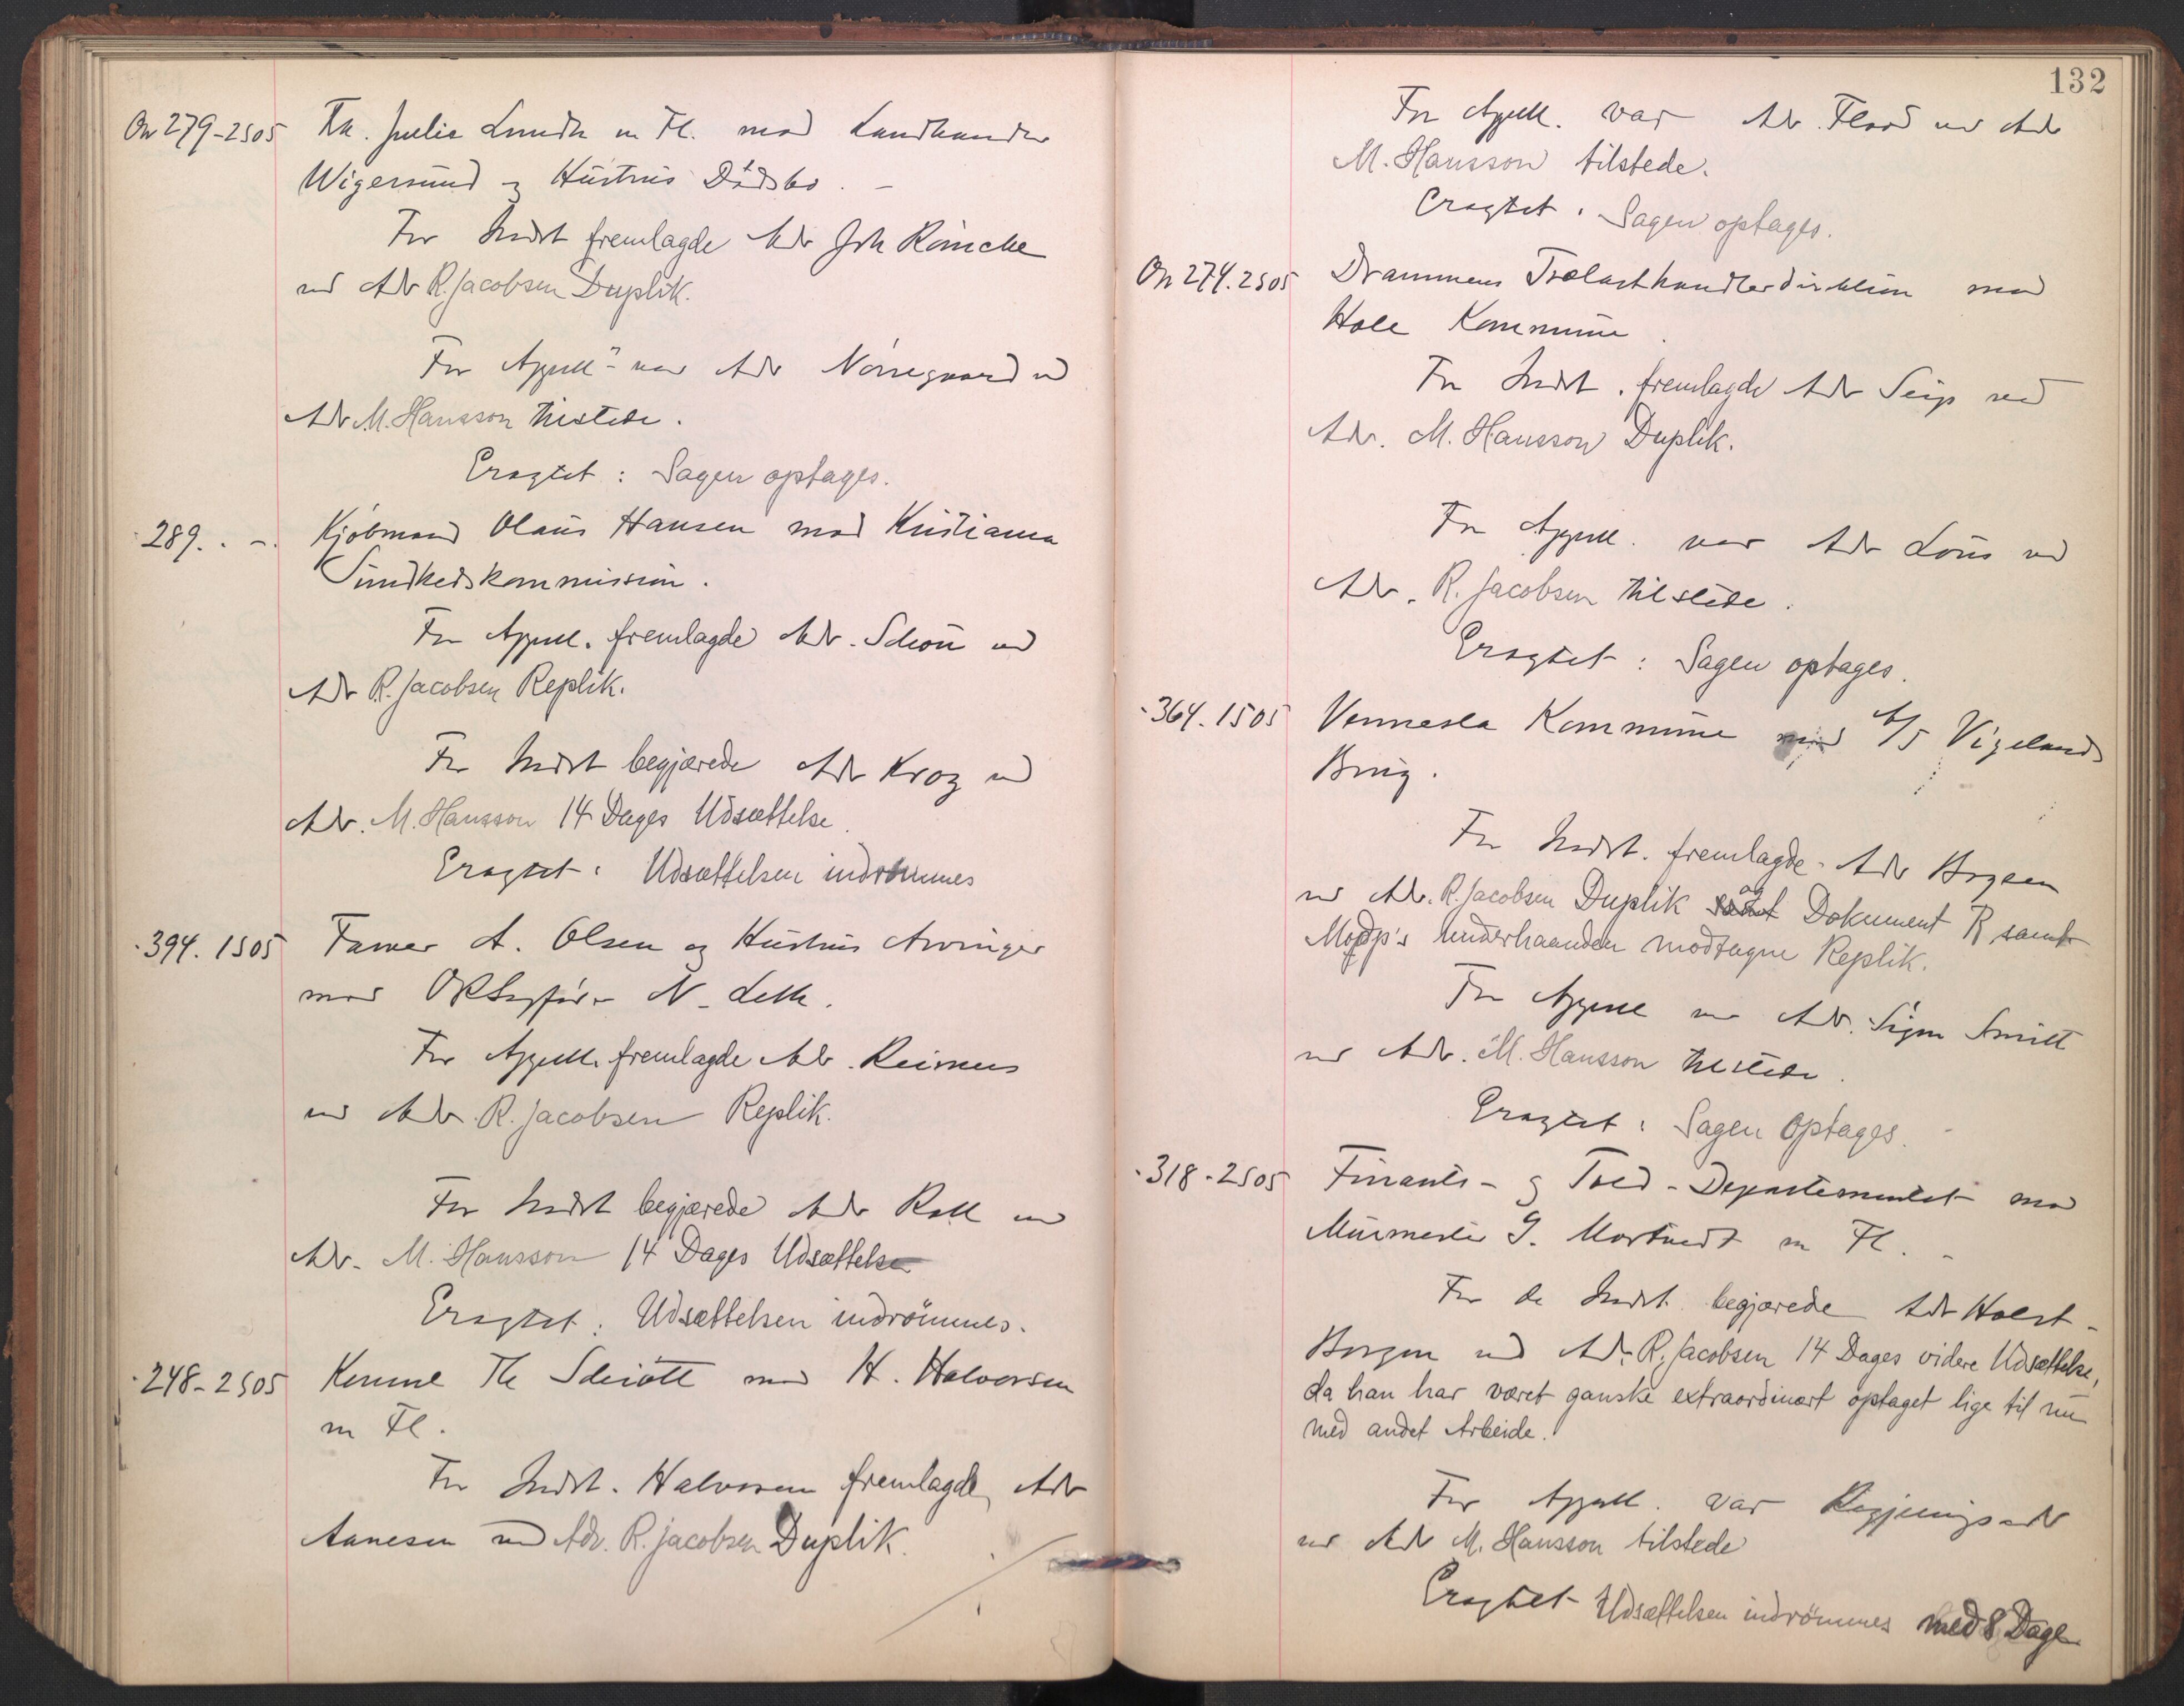 On 279-2505 Frk. Julie Lundh m Fl. mod Landhandler
Wigersund og Hustrus Dödsbo. -
For Indst fremlagde Adv Joh Reincke
ved Adv R. Jacobsen Duplik.
For Appell- var Adv Nörregaard ved
Adv M. Hansson tilstede.
Eragtet: Sagen optages.
- 289. . -. Kjöbmand Olaus Hansen mod Kristiania
Sundhedskommission.
For Appell. fremlagde Adv. Schou ved
Adv R. Jacobsen Replik.
For Indst begjærede Adv Krog ved
Adv. M. Hansson 14 Dages Udsættelse.
Eragtet: Udsættelsen indrömmes
- 394. 1505 Farver A. Olsen og Hustrus Arvinger
mod ORSagförer N. Leth.
For Appell. fremlagde Adv. Reimers
ved Adv. R. Jacobsen Replik.
For Indst begjærede Adv Roll ved
Adv. M. Hansson 14 Dages Udsættelse
Eragtet: Udsættelsen indrömmes.
- 248-2505 Th Schiött mod H. Halvorsen
m Fl.
For Indst. Halvorsen fremlagde Adv
Aanesen ved Adv. R. Jacobsen Duplik.
132
For Appell. var Adv. Flood ved Adv
M. Hansson tilstede.
Eragtet: Sagen optages.
On 274. 2505 Drammens Trælasthandlerdirektion mod
Hole Kommune.
For Indst. fremlagde Adv Seip ved
Adv. M. Hansson Duplik.
For Appell. var Adv Lous ved
Adv. R. Jacobsen tilstede.
Eragtet: Sagen optages.
- 364. 1505 Vennesla Kommune mod A/S Vigelands
Brug.
For Indst. fremlagde Adv
ved Adv. R. Jacobsen Duplik og Dokument R samt
Modp's underhaanden modtagne Replik.
For Appell var Adv. Sigm Smitt
ved Adv. M. Hansson tilstede.
Eragtet: Sagen optages.
- 318-2505 Finants- og Told-Departementet mod
Murmester G. Martinsen m Fl. -
For de Indst. begjærede Adv Holst-
ved Adv. R. Jacobsen 14 Dages videre Udsættelse,
da han har været ganske extraordinært optaget lige til nu
med andet Arbeide.
For Appell. var Regjeringsadv
ved Adv M. Hansson tilstede
Eragtet Udsættelsen indrömmes med 8 Dage